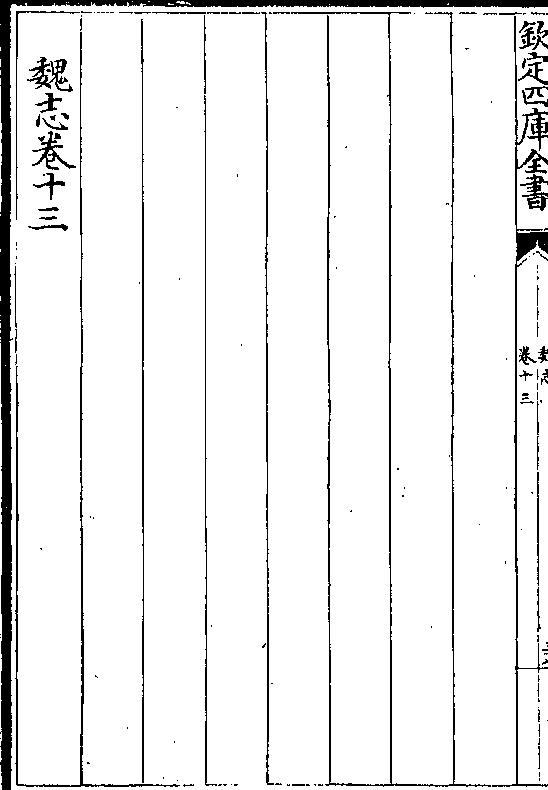 欽定四庫全書
魏志
卷十三
魏志卷十三